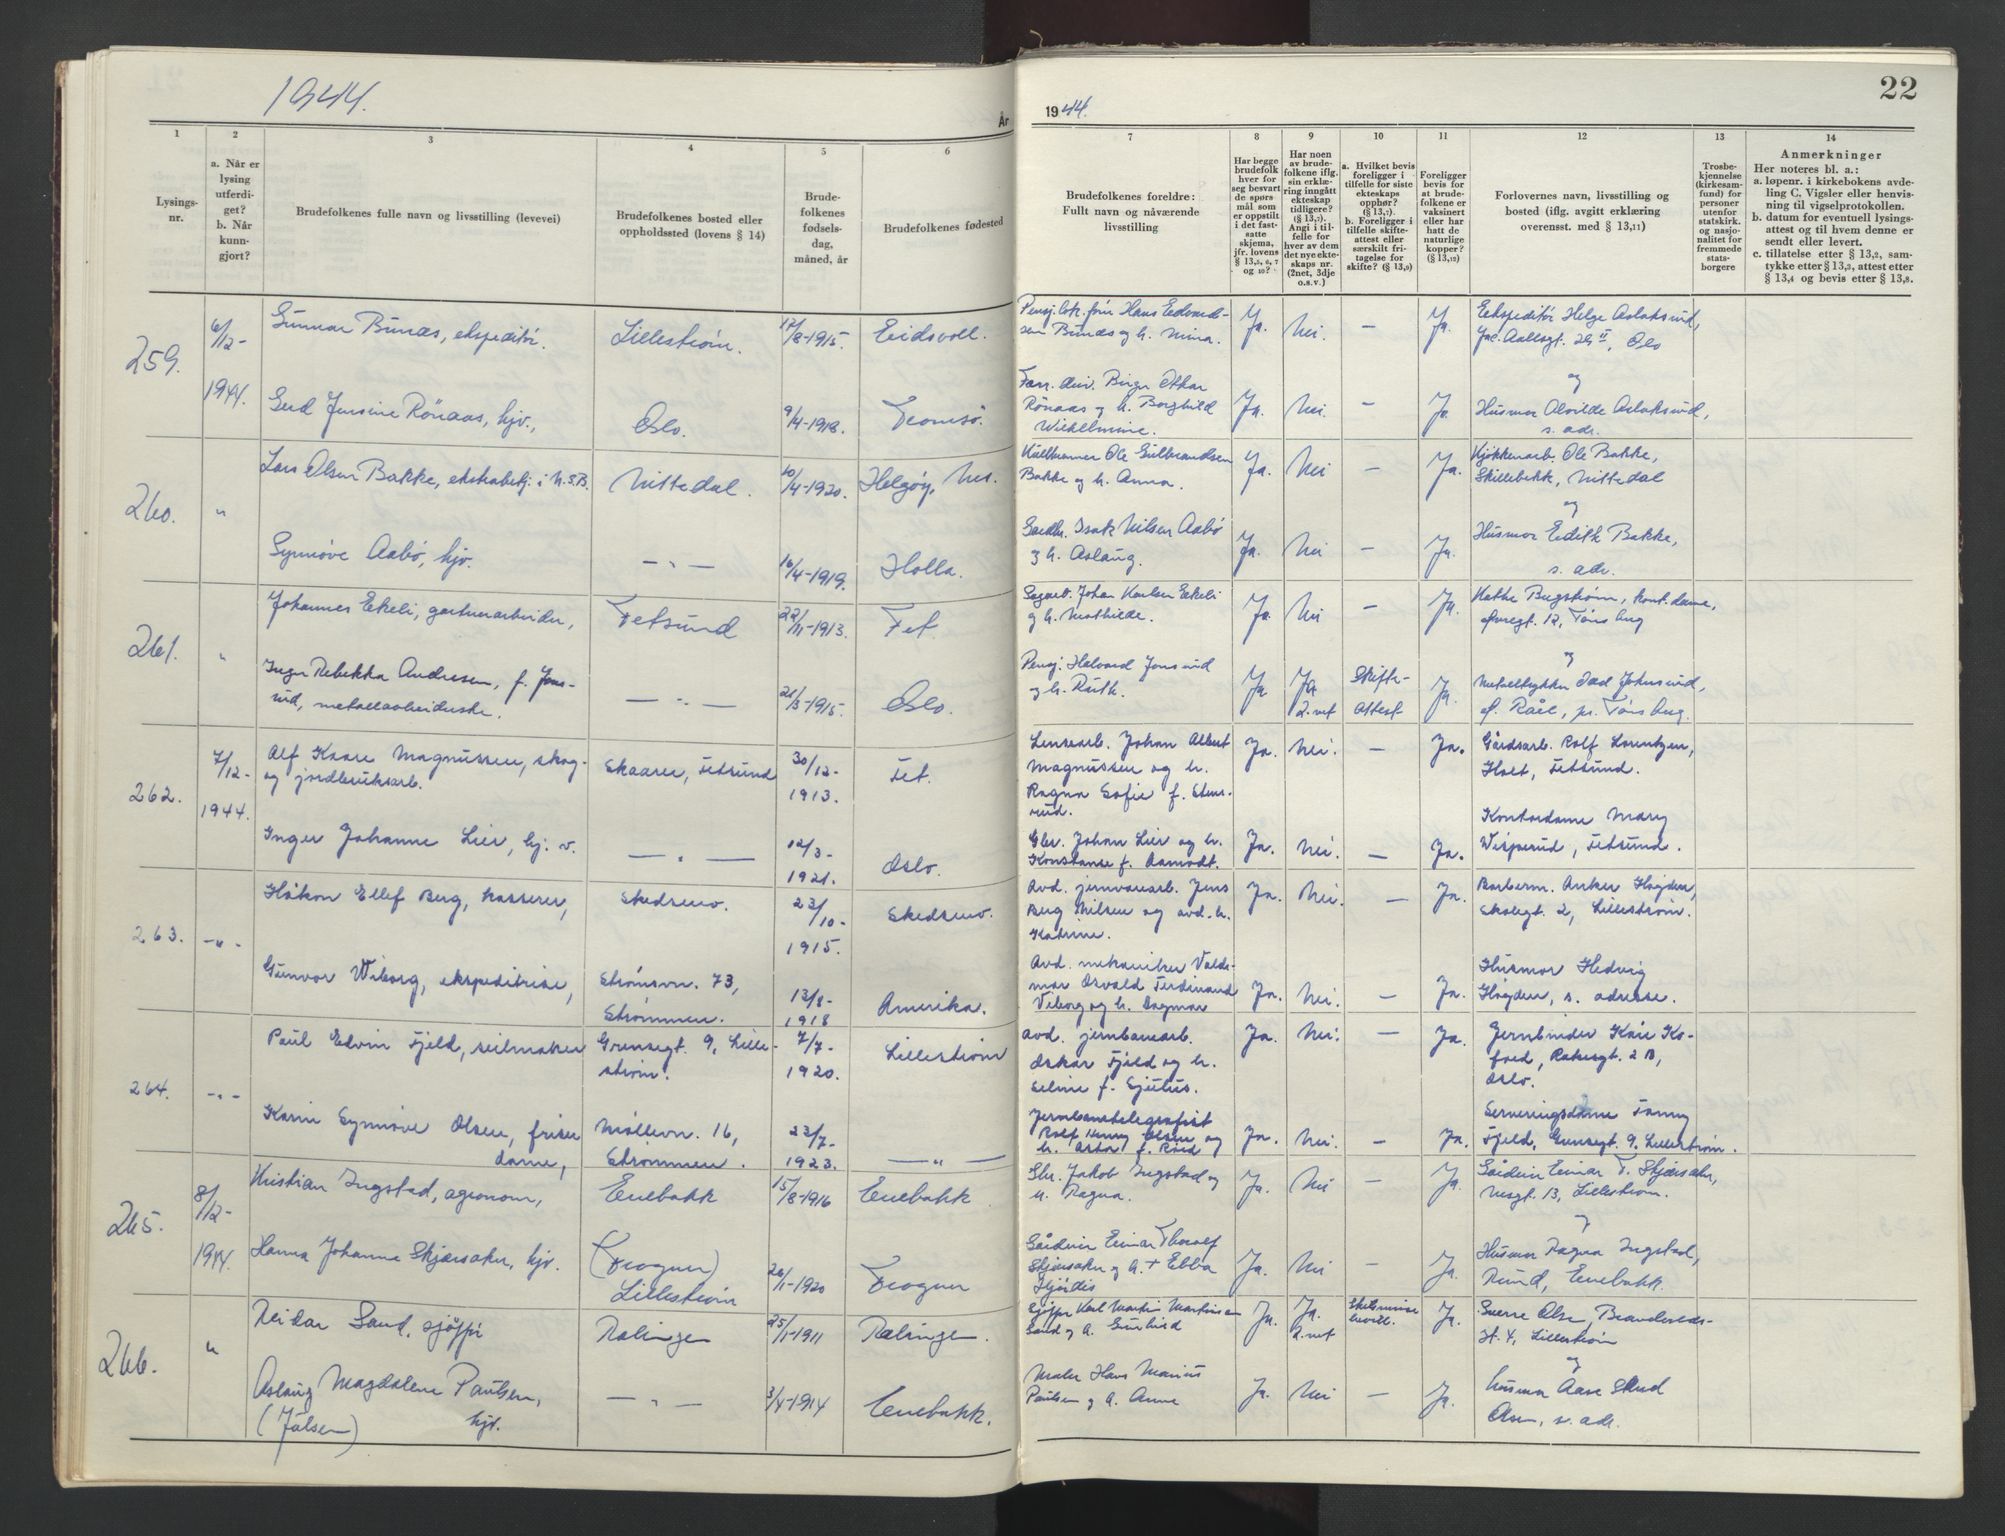 1944.
År
1
2
3
4
5
6
Lysings-
nr.
a. Når er
lysing
utferdi-
get?
b. Når
kunn-
gjort?
Brudefolkenes fulle navn og livsstilling (levevei)
Brudefolkenes bosted eller
oppholdssted (lovens § 14)
Brude-
folkenes
fødsels-
dag,
måned, år
Brudefolkenes fødested
259.
6/12-
1944.
Gunnar Bunæs, ekspeditør.
Lillestrøm.
17/8-1915.
Eidsvoll.
Gerd Jensine Rönaas, hjv.,
Oslo.
9/4-1918.
Tromsö.
260.
"
Lars Olsen Bakke, ekstrabetj. i N.S.B.
Nittedal.
20/4-1920.
Helgøy, Nes.
Synnøve Aabö, hjv.
— " —
16/4-1919.
Holla.
261.
"
Johannes Ekeli, gartnerarbeider,
Fetsund
22/11-1913.
Fet.
Inger Rebekka Andresen, f. Jons-
rud, metallarbeiderske.
— " —
21/3-1915.
Oslo.
262.
7/12-
1944.
Alf Kaare Magnussen, skog-
og jordbruksarb.
Skaarer, Fetsund
30/12-
1913.
Fet.
Inger Johanne Lier, hj. v.
— " —
12/3-
1921.
Oslo.
263.
-"-
Håkon Ellef Berg, kasserer,
Skedsmo.
23/10-
1915.
Skedsmo.
Gunvor Wiborg, ekspeditrise,
Strømsvn. 73,
Strømmen.
13/8-
1918
Amerika.
264.
-"-
Paul Edvin Fjeld, seilmaker
Grensegt. 9, Lille-
strøm.
7/7-
1920.
Lillestrøm
Karin Synnøve Olsen, friser
dame,
Møllevn. 16,
Strømmen.
23/7-
1923.
— " —
265.
8/12-
1944.
Kristian Ingstad, agronom,
Enebakk
15/8-1916
Enebakk
Hanna Johanne Skjærsaker, hjv.
(Frogner)
Lillestrøm
26/1-1920
Frogner
266.
"
Reidar Sand, sjåfør
Rælingen
25/1-1911
Rælingen.
Aslaug Magdalene Paulsen,
(Jølsen) hjv.
— " —
3/4-1914
Enebakk.
1944.
22
7
8
9
10
11
12
13
14
Brudefolkenes foreldre:
Fullt navn og nåværende
livsstilling
Har begge
brudefolk
hver for
seg besvart
de spørs-
mål som
er oppstilt
i det fast-
satte
skjema,
jfr. lovens
§ 13,5, 6, 7
og 10?
Har noen
av brude-
folkene iflg.
sin erklæ-
ring inngått
ekteskap
tidligere?
(§ 13,7).
Angi i til-
felle for
hver av dem
det nye ekte-
skaps nr.
(2net, 3dje
o.s.v.)
a. Hvilket bevis
foreligger i
tilfelle for siste
ekteskaps
opphør?
(§ 13,7).
b. Foreligger i
tilfelle skifte-
attest eller
særskilt fri-
tagelse for
skifte? (§ 13,9)
Foreligger
bevis for
at brude-
folkene er
vaksinert
eller har
hatt de
naturlige
kopper?
(§ 13,12)
Forlovernes navn, livsstilling og
bosted (iflg. avgitt erklæring
overensst. med § 13,11)
Trosbe-
kjennelse
(kirkesam-
fund) for
personer
utenfor
statskirk.
og nasjo-
nalitet for
fremmede
stats-
borgere
Anmerkninger
Her noteres bl. a.:
a. løpenr. i kirkebokens avde-
ling C. Vigsler eller henvis-
ning til vigselprotokollen.
b. datum for eventuell lysings-
attest og til hvem denne er
sendt eller levert.
c. tillatelse etter § 13,2, sam-
tykke etter § 13,3, attest etter
§ 13,4 og bevis etter § 13,8.
Hans Edvard-
sen Bunæs og h. Nina.
Ja. Nei. — Ja.
Ekspeditör Helge Aslaksrud,
Jac. Aallsgt. II, Oslo
og
Birger Othar
Rönaas og h. Borghild
Wilhelmine.
Ja. Nei. — Ja
Husmor Alvilde Aslaksrud,
s. adr.
Ole Gulbrandsen
Bakke og h. Anna.
Ja. Nei — Ja.
Kjøkkenarb. Ole Bakke,
Skillebekk, Nittedal
og
Gardbr. Isak Nilsen Aabö
og h. Aslaug.
Ja. Nei — Ja.
Husmor Edith Bakke,
s. adr.
Johan Karlsen Ekeli
og h. Mathilde.
Ja. Nei — Ja.
Käthe Bugström, kont.dame,
Øvregt. 12, Tönsberg
og
Pensj. Halvard Jonsrud
og h. Ruth.
Ja Ja
2. net
Skifte-
attest
Ja.
Johnsrud,
p. Råel, pr. Tönsberg.
Lensearb. Johan Albert
Magnussen og h.
Ragna Sofie f. Stens-
rud.
Ja. Nei. — Ja.
Gårdsarb. Rolf Lorentzen,
Holt, Fetsund.
Gbr. Johan Lier og h.
Konstanse f. Aamodt.
Ja. Nei. — Ja.
Kontordame Mary
Fetsund.
Avd. jernvarearb. Jens
Berg Nilsen og avd. h.
Katrine.
Ja. Nei. — Ja.
Barberm. Anker Høgden,
Skolegt. 2, Lillestrøm.
Avd. mekaniker Valde-
mar Osvald Ferdinand
Viborg og h. Dagmar
Ja. Nei. — Ja.
Husmor Hedvig
Høgden, s. adresse.
Avd. jernbanearb.
Oskar Fjeld og h.
Eeline f. Sjulus.
Ja. Nei. — Ja.
Jernbinder Kåre Ko-
foed, 2 B,
Oslo.
Jernbanetelegrafist
Rolf Henry Olsen og
h. Astor f. Röed
Ja. Nei. — Ja.
Serveringsdame Fanny
Fjeld, Grensegt. 9, Lillestrøm.
Gbr. Jakob Ingstad og
h. Ragna.
Ja. Nei — Ja
Gårdeier Einar T. Skjærsaker,
Nesgt. 13, Lillestrøm.
og
Gårdeier Einar Thoralf
Skjærsaker og h. + Ebba
Hjördis
Ja. Nei — Ja.
Husmor Ragna Ingstad,
Rund, Enebakk.
Sjåför Karl Martin Martinsen
Sand og h. Gunhild
Ja. Ja.
2. net
Ja.
Sverre Olsen, Brandvolds-
gt. 4, Lillestrøm
og
Maler Hans Marius
Paulsen og h. Anne
Ja. Nei — Ja.
husmor Aase Skud
Olsen, s. adr.